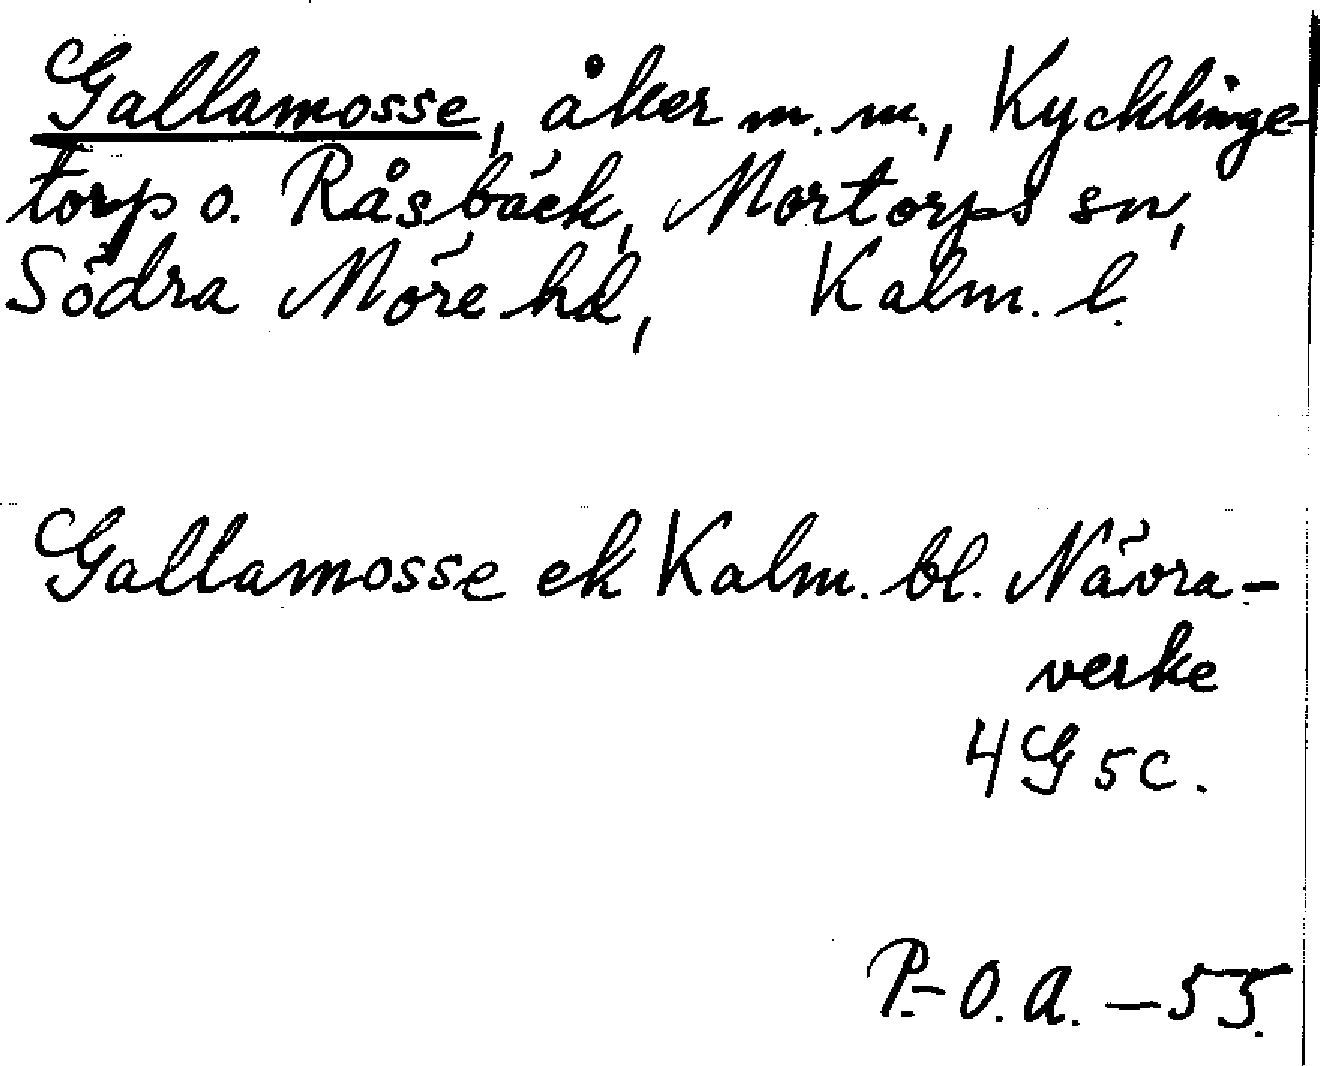 Gallamosse, åker m.m., Kycklinge-
torp o. Råsbäck, Mortorps sn,
Södra Möre hd, Kalm. l.
Gallamosse ek Kalm. bl. Nävra-
verke
4G5c.
P.-O.A. – 55.